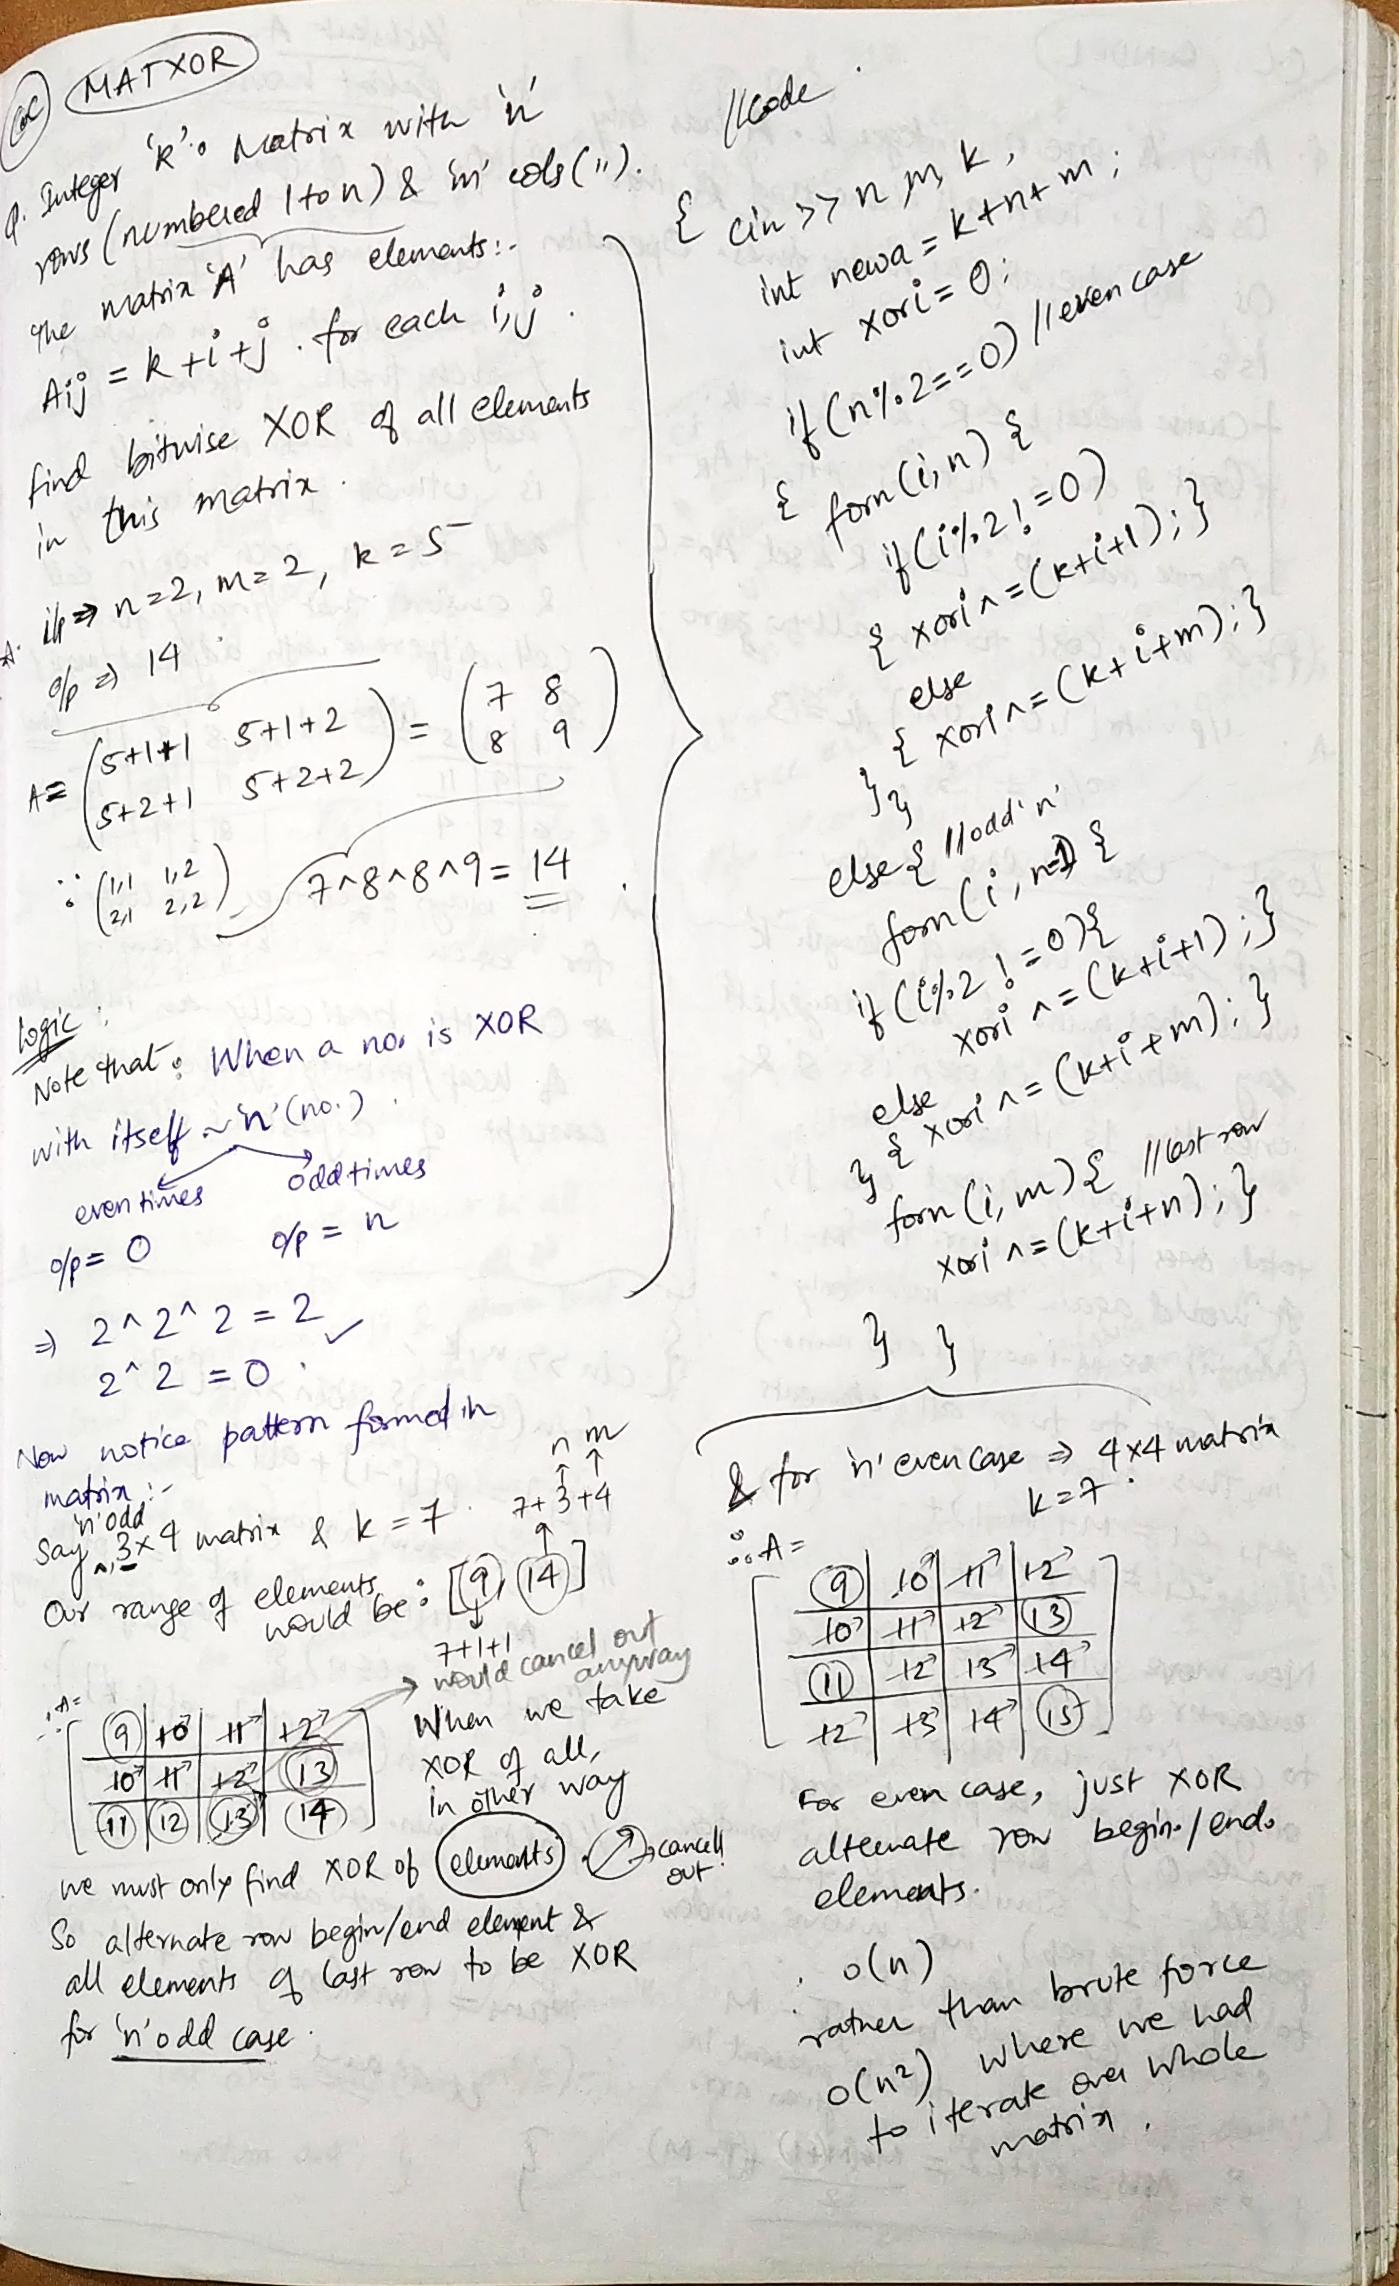 CC MATXOR
Q. Integer 'k'. Matrix with 'n'
rows (numbered 1 to n) & 'm' cols (").
The matrix 'A' has elements:-
Aij = k+i+j . for each i,j .
find bitwise XOR of all elements
in this matrix .
A. i/p ⇒ n=2, m=2, k=5
o/p ⇒ 14
A = (5+1+1 5+1+2) = (7 8)
(5+2+1 5+2+2) (8 9)
∵ (1,1 1,2) 7^8^8^9 = 14
(2,1 2,2)
Logic :
Note that : When a no. is XOR
with itself ~ 'n' (no.) .
even times odd times
o/p = 0 o/p = n
⇒ 2^2^2 = 2 ✓
2^2 = 0 .
Now notice pattern formed in
matrix :-
'n' odd n m
Say, 3x4 matrix & k = 7 . 7+3+4
Our range of elements
would be : [9, 14]
7+1+1
would cancel out
anyway
∴ A =
9 10 11 12
10 11 12 13
11 12 13 14
When we take
XOR of all,
in other way
we must only find XOR of elements . → cancell
out!
So alternate row begin/end element &
all elements of last row to be XOR
for 'n' odd case .
//Code
{ cin >> n, m, k,
int newa = k+n+m ;
int xori = 0;
if (n%2==0) //even case
{ forn (i,n) {
if (i%2!=0)
{ xori ^= (k+i+1); }
else
{ xori ^= (k+i+m); }
} }
else { //odd 'n'
forn (i, n-1) {
if (i%2 != 0) {
xori ^= (k+i+1); }
else
{ xori ^= (k+i+m); }
}
forn (i, m) { //last row
xori ^= (k+i+n); }
} }
& for 'n' even case ⇒ 4x4 matrix
k=7 .
∴ A =
9 10 11 12
10 11 12 13
11 12 13 14
12 13 14 15
For even case, just XOR
alternate row begin./end.
elements.
. O(n)
rather than brute force
O(n²) where we had
to iterate over whole
matrix .